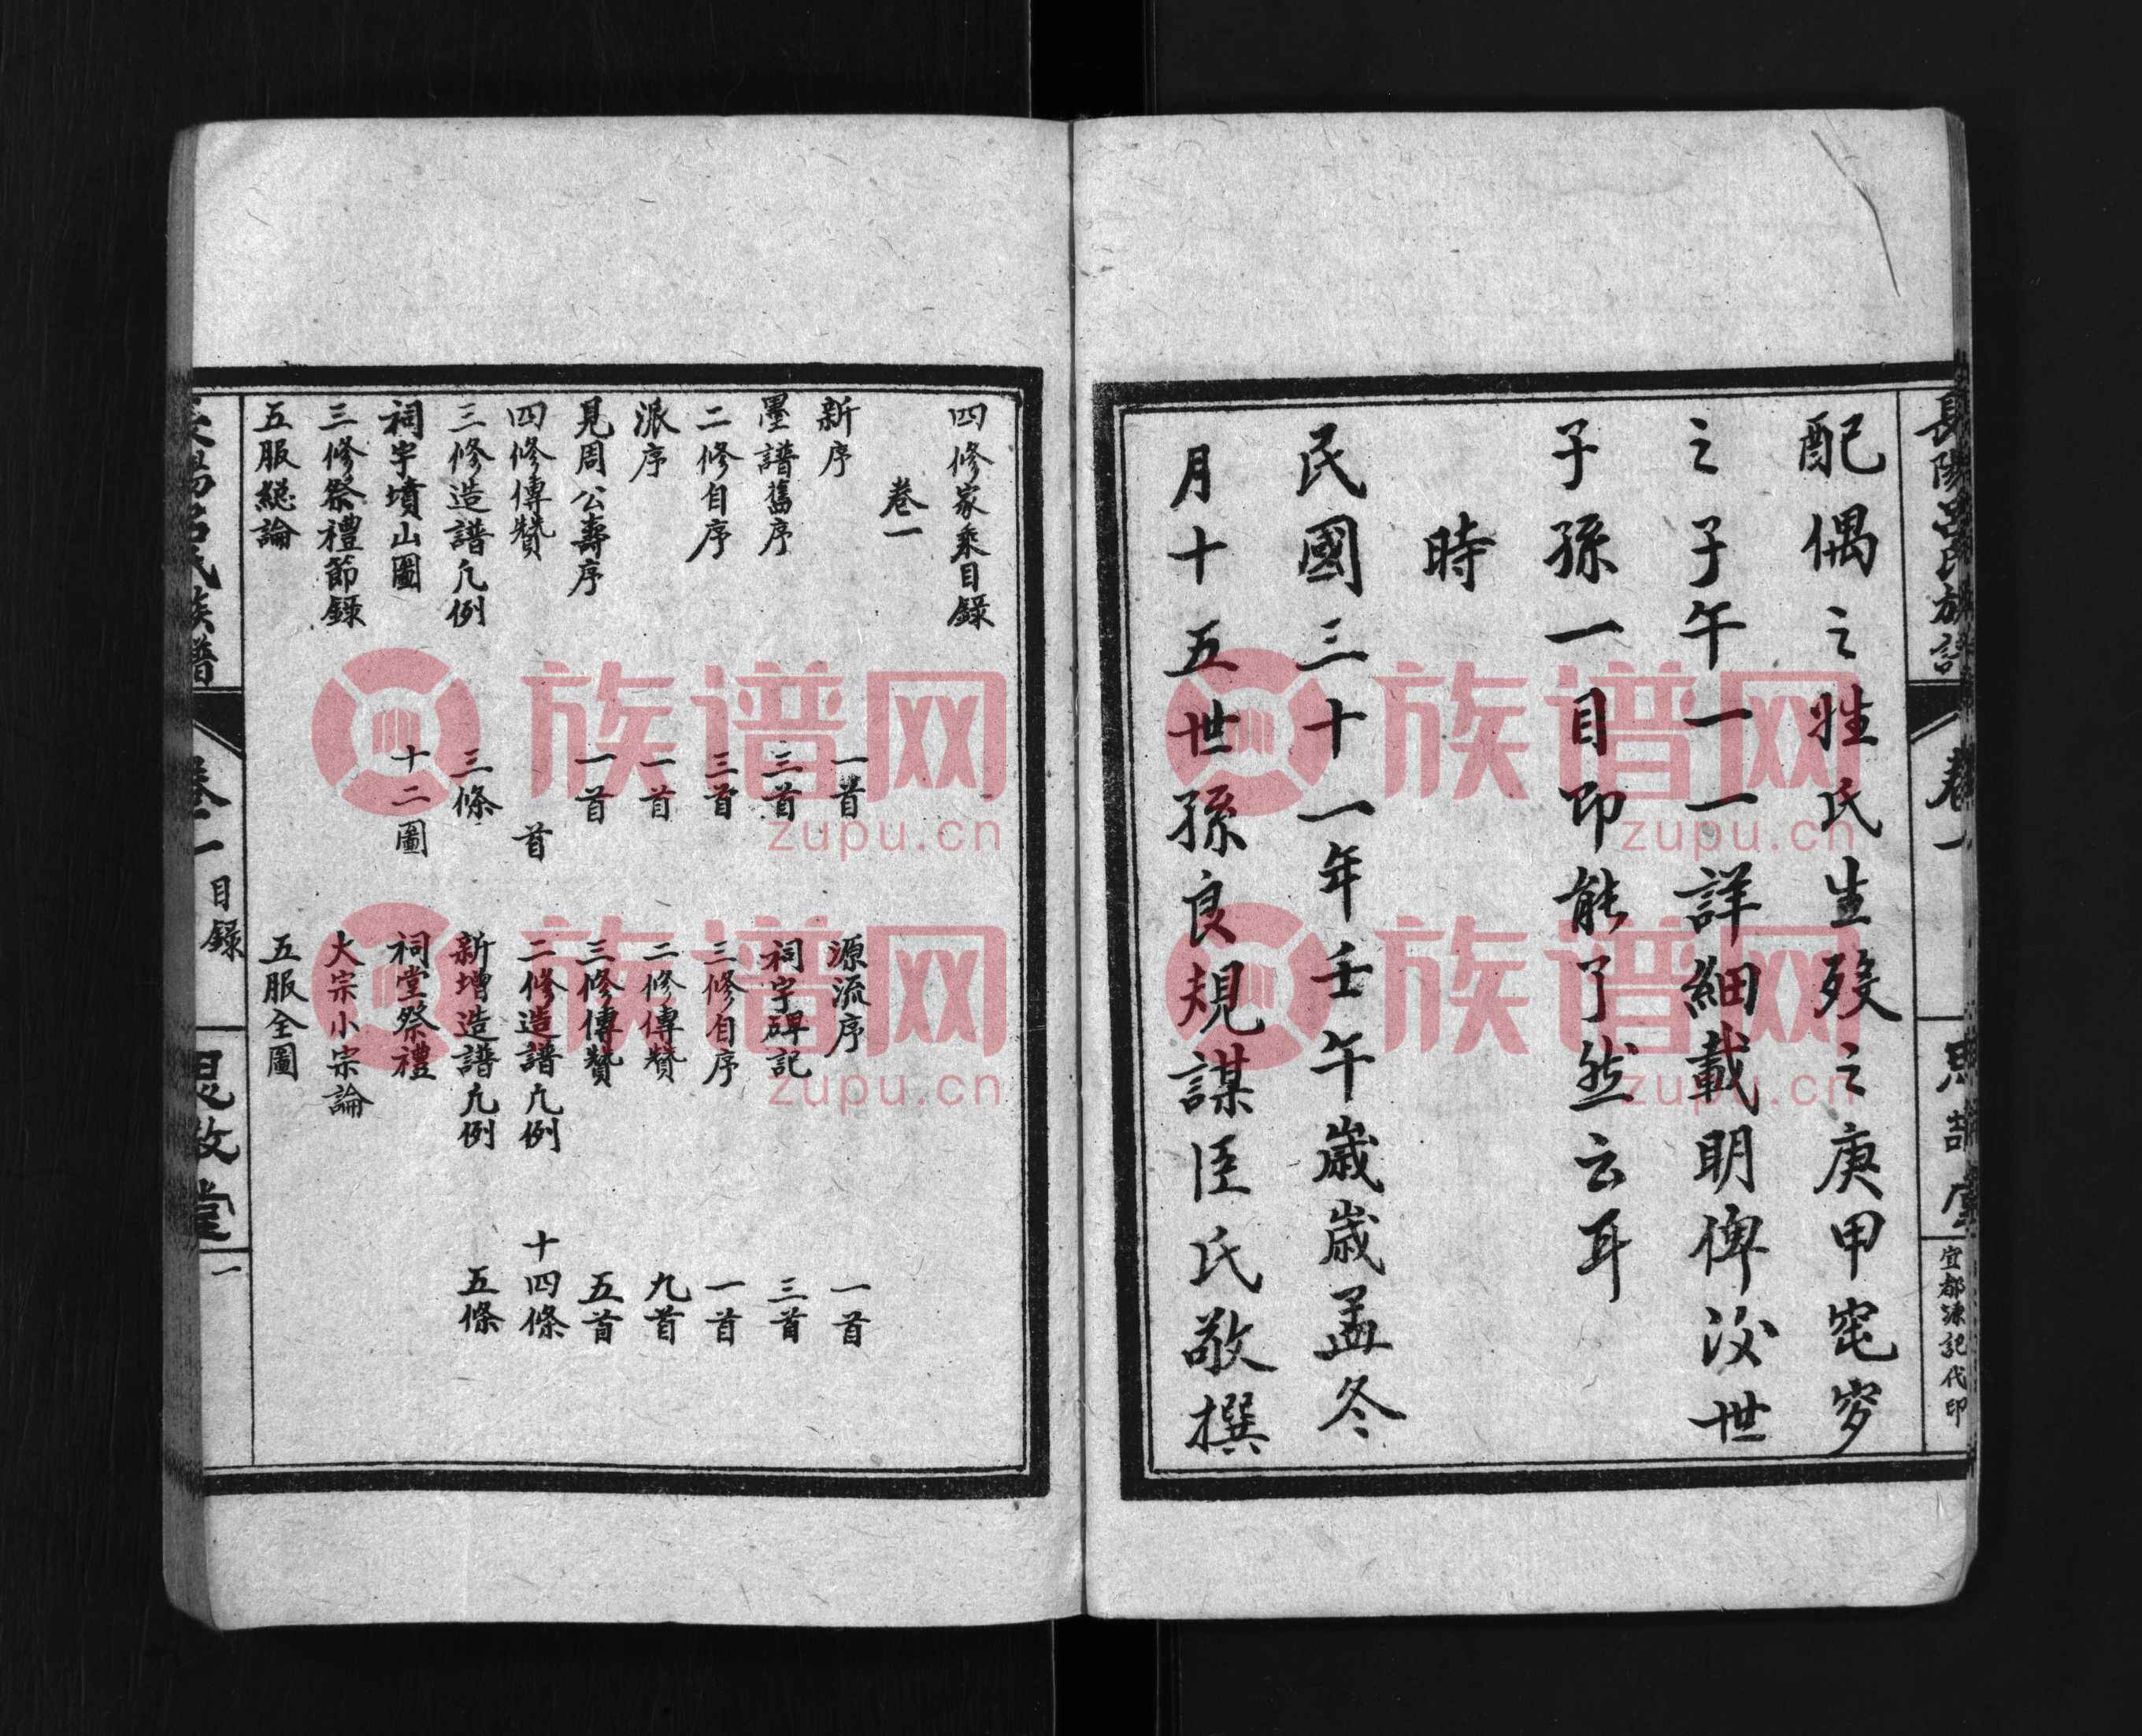 配偶之姓氏生歿之庚甲窀穸
之子午一一詳細載明俾後世
子孫一目即能了然云耳
時
民國三十一年壬午歲歲孟冬
月十五世孫良規謀臣氏敬撰
卷一
堂
宜都源記代印
四修家乘目錄
卷一
新序 一首 源流序 一首
墨譜舊序 三首 祠宇碑記 三首
二修自序 三首 三修自序 一首
派序 一首 二修傳贊 九首
見周公壽序 一首 三修傳贊 五首
四修傳贊 首 二修造譜凡例 十四條
三修造譜凡例 三條 新增造譜凡例 五條
祠宇墳山圖 十二圖 祠堂祭禮
三修祭禮節錄 大宗小宗論
五服總論 五服全圖
呂氏族譜
卷一 目錄
思敬堂
一
族谱网
zupu.cn
族谱网
zupu.cn
族谱网
zupu.cn
族谱网
zupu.cn